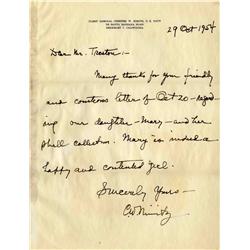 FLEET ADMIRAL CHESTER W. NIMITZ, U.S. NAVY
28 SANTA BARBARA ROAD
BERKELEY 7, CALIFORNIA
29 Oct 1954
Dear Mr. Treston:-
Many thanks for your friendly
and courteous letter of Oct 20 - regard
ing our daughter - Mary - and her
shell collection. Mary is indeed a
happy and contented girl.
Sincerely Yours -
CW Nimitz